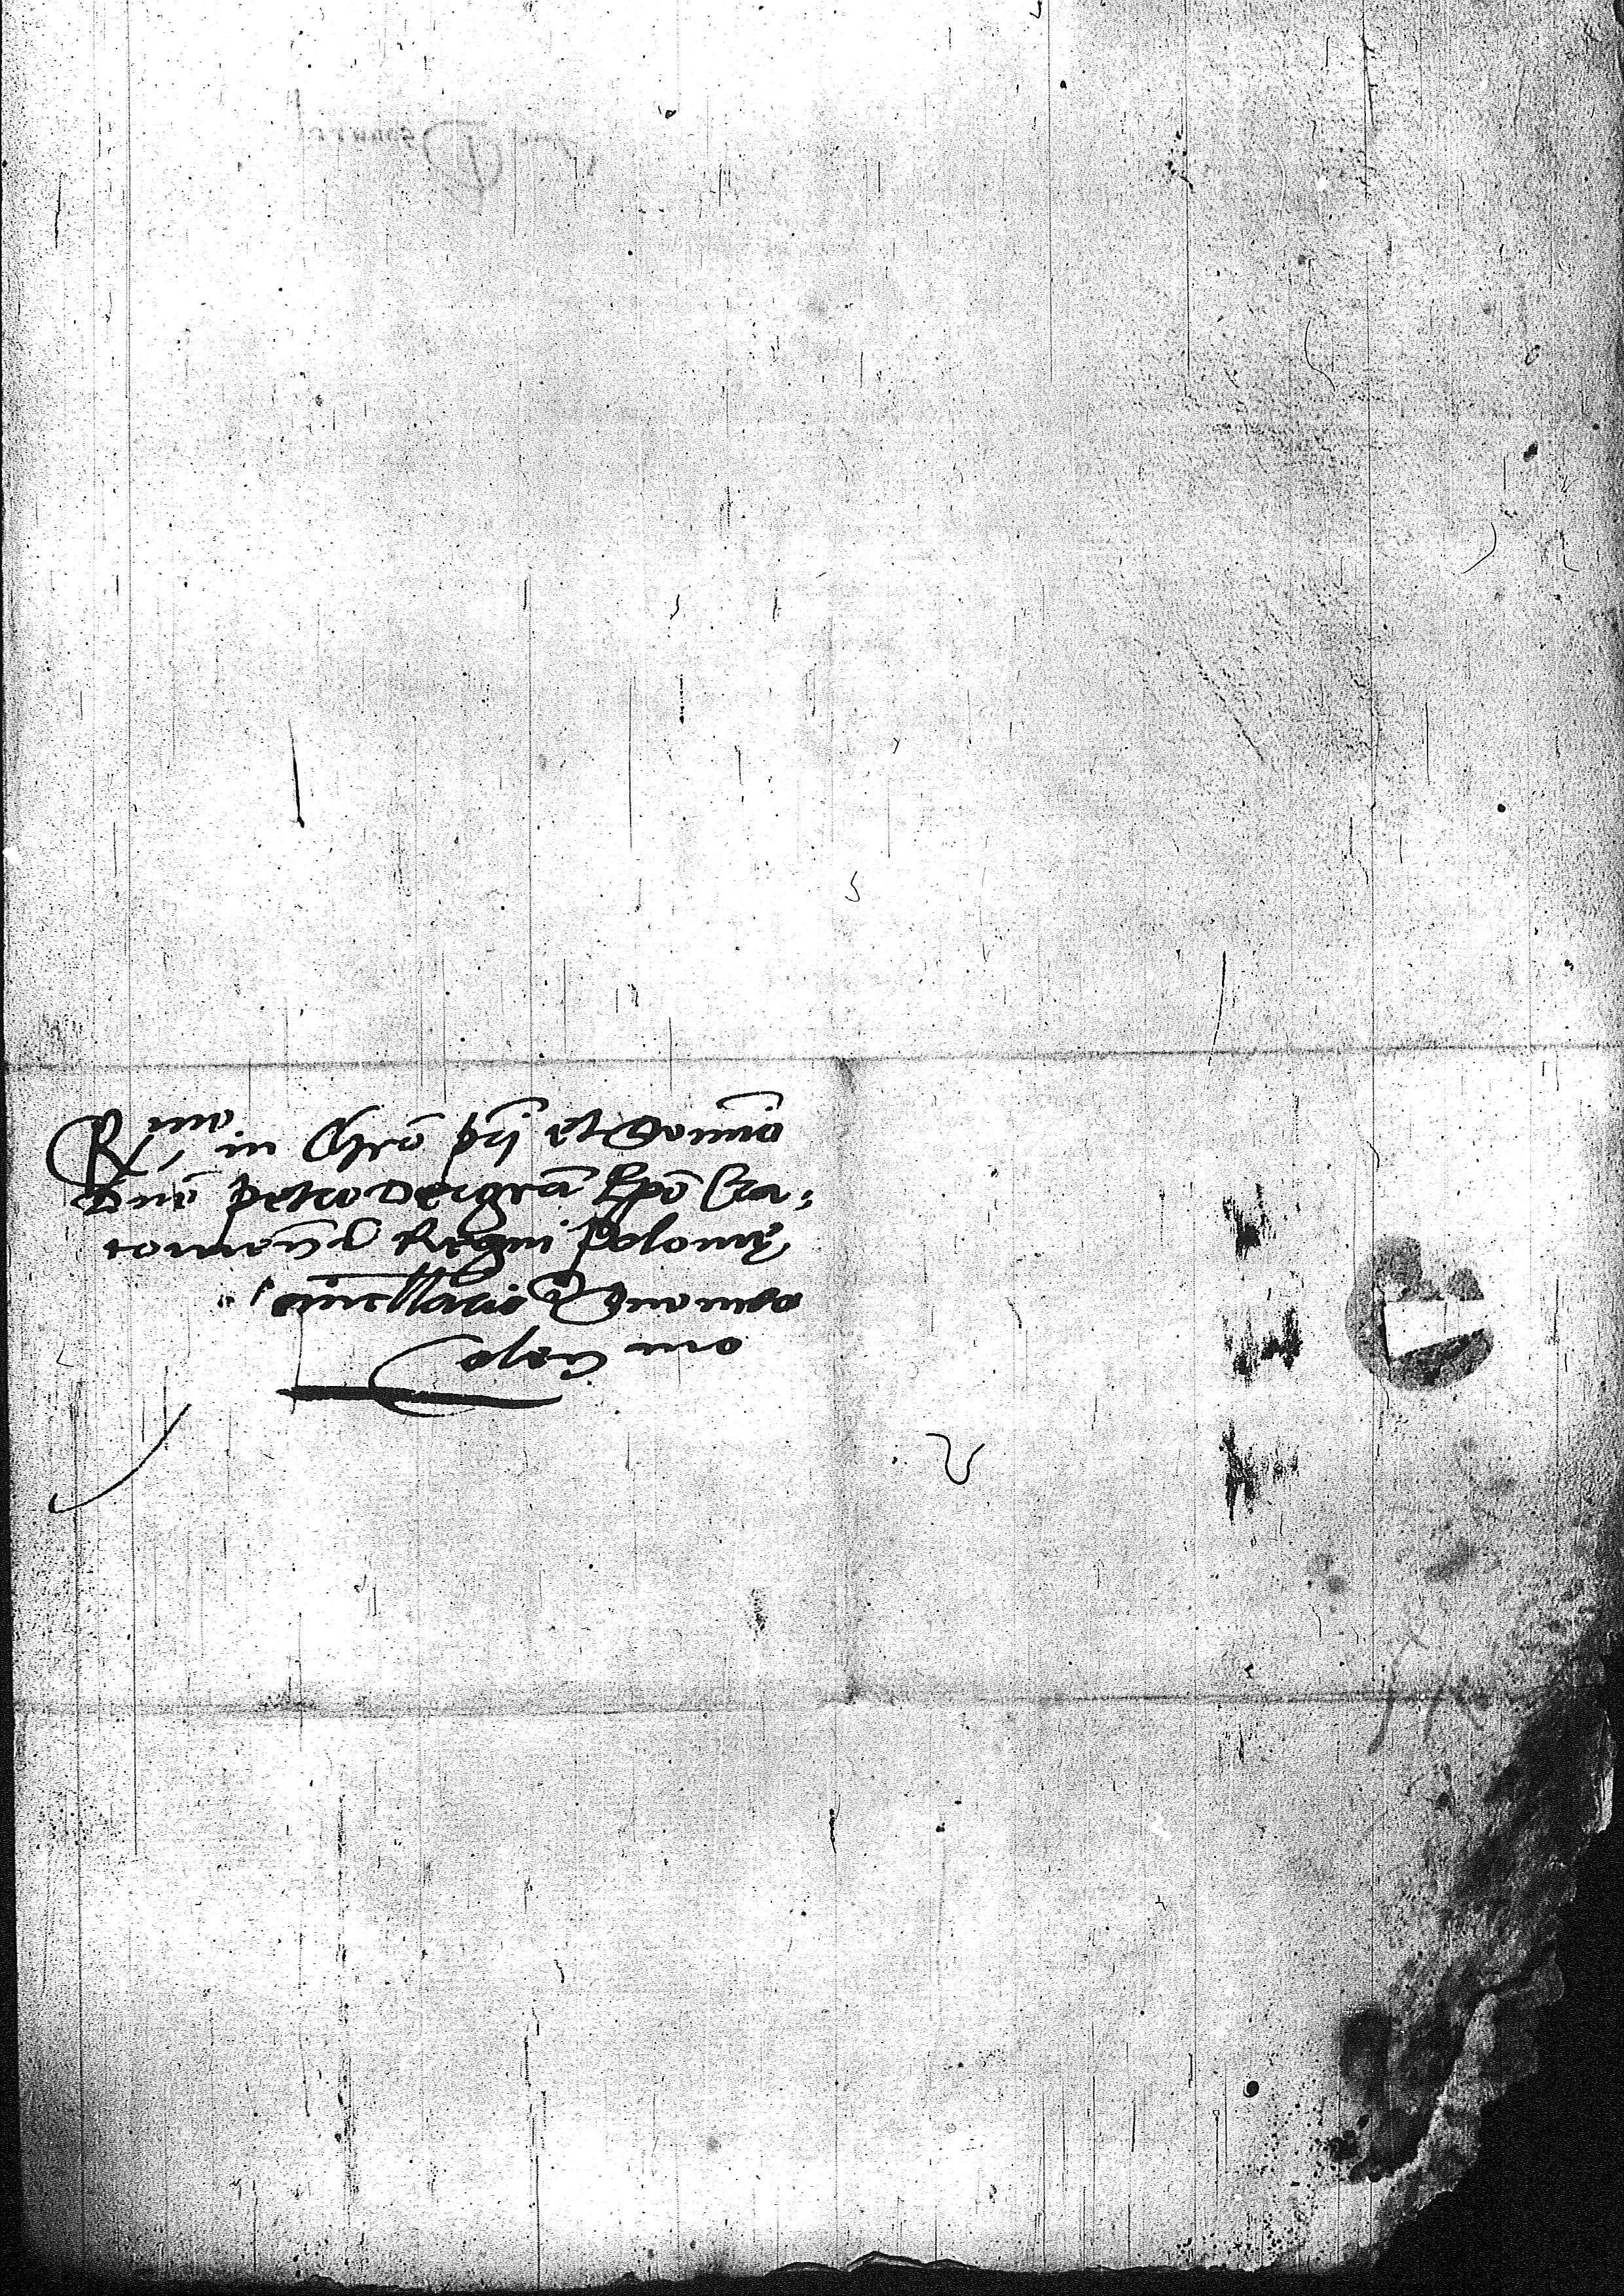 Rmo in Chro pri et Domino
Dno Petro Dei gra Epo Cra-
couien Regni Polonię
Vicecancellario Dno meo
Colen mo